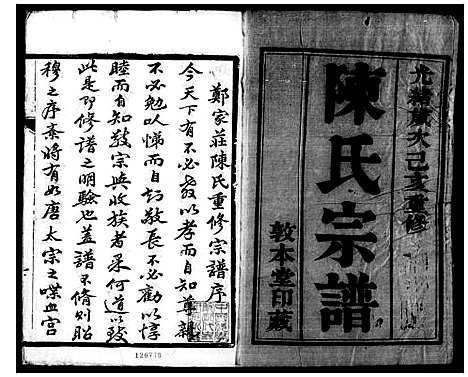 光緒歲次己亥重修
陳氏宗譜
敦本堂印藏
鄭家莊陳氏重修宗譜序
今天下有不必教以孝而自知尊親
不必勉以悌而自知敬長不必勸以惇
睦而自知敬宗與收族者果何道以致
此是即修譜之明驗也蓋譜不修則昭
穆之序紊將有如唐太宗之喋血宫
126778